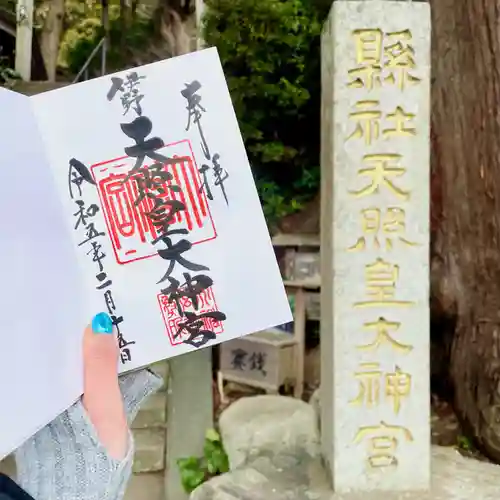 奉拝
勢野
天照皇大神宮
令和五年二月十五日
縣社天照皇大神宮
賽銭